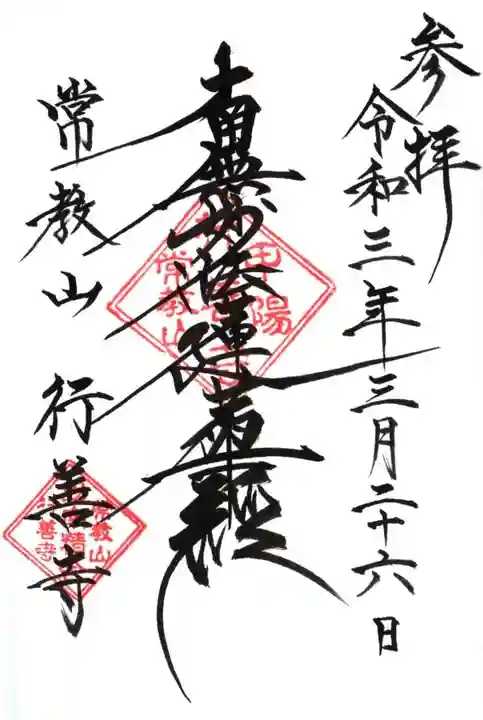 参拝
令和三年三月二十六日
南無妙法蓮華経
常教山 行善寺
甲陽
常教山
常教山
善寺